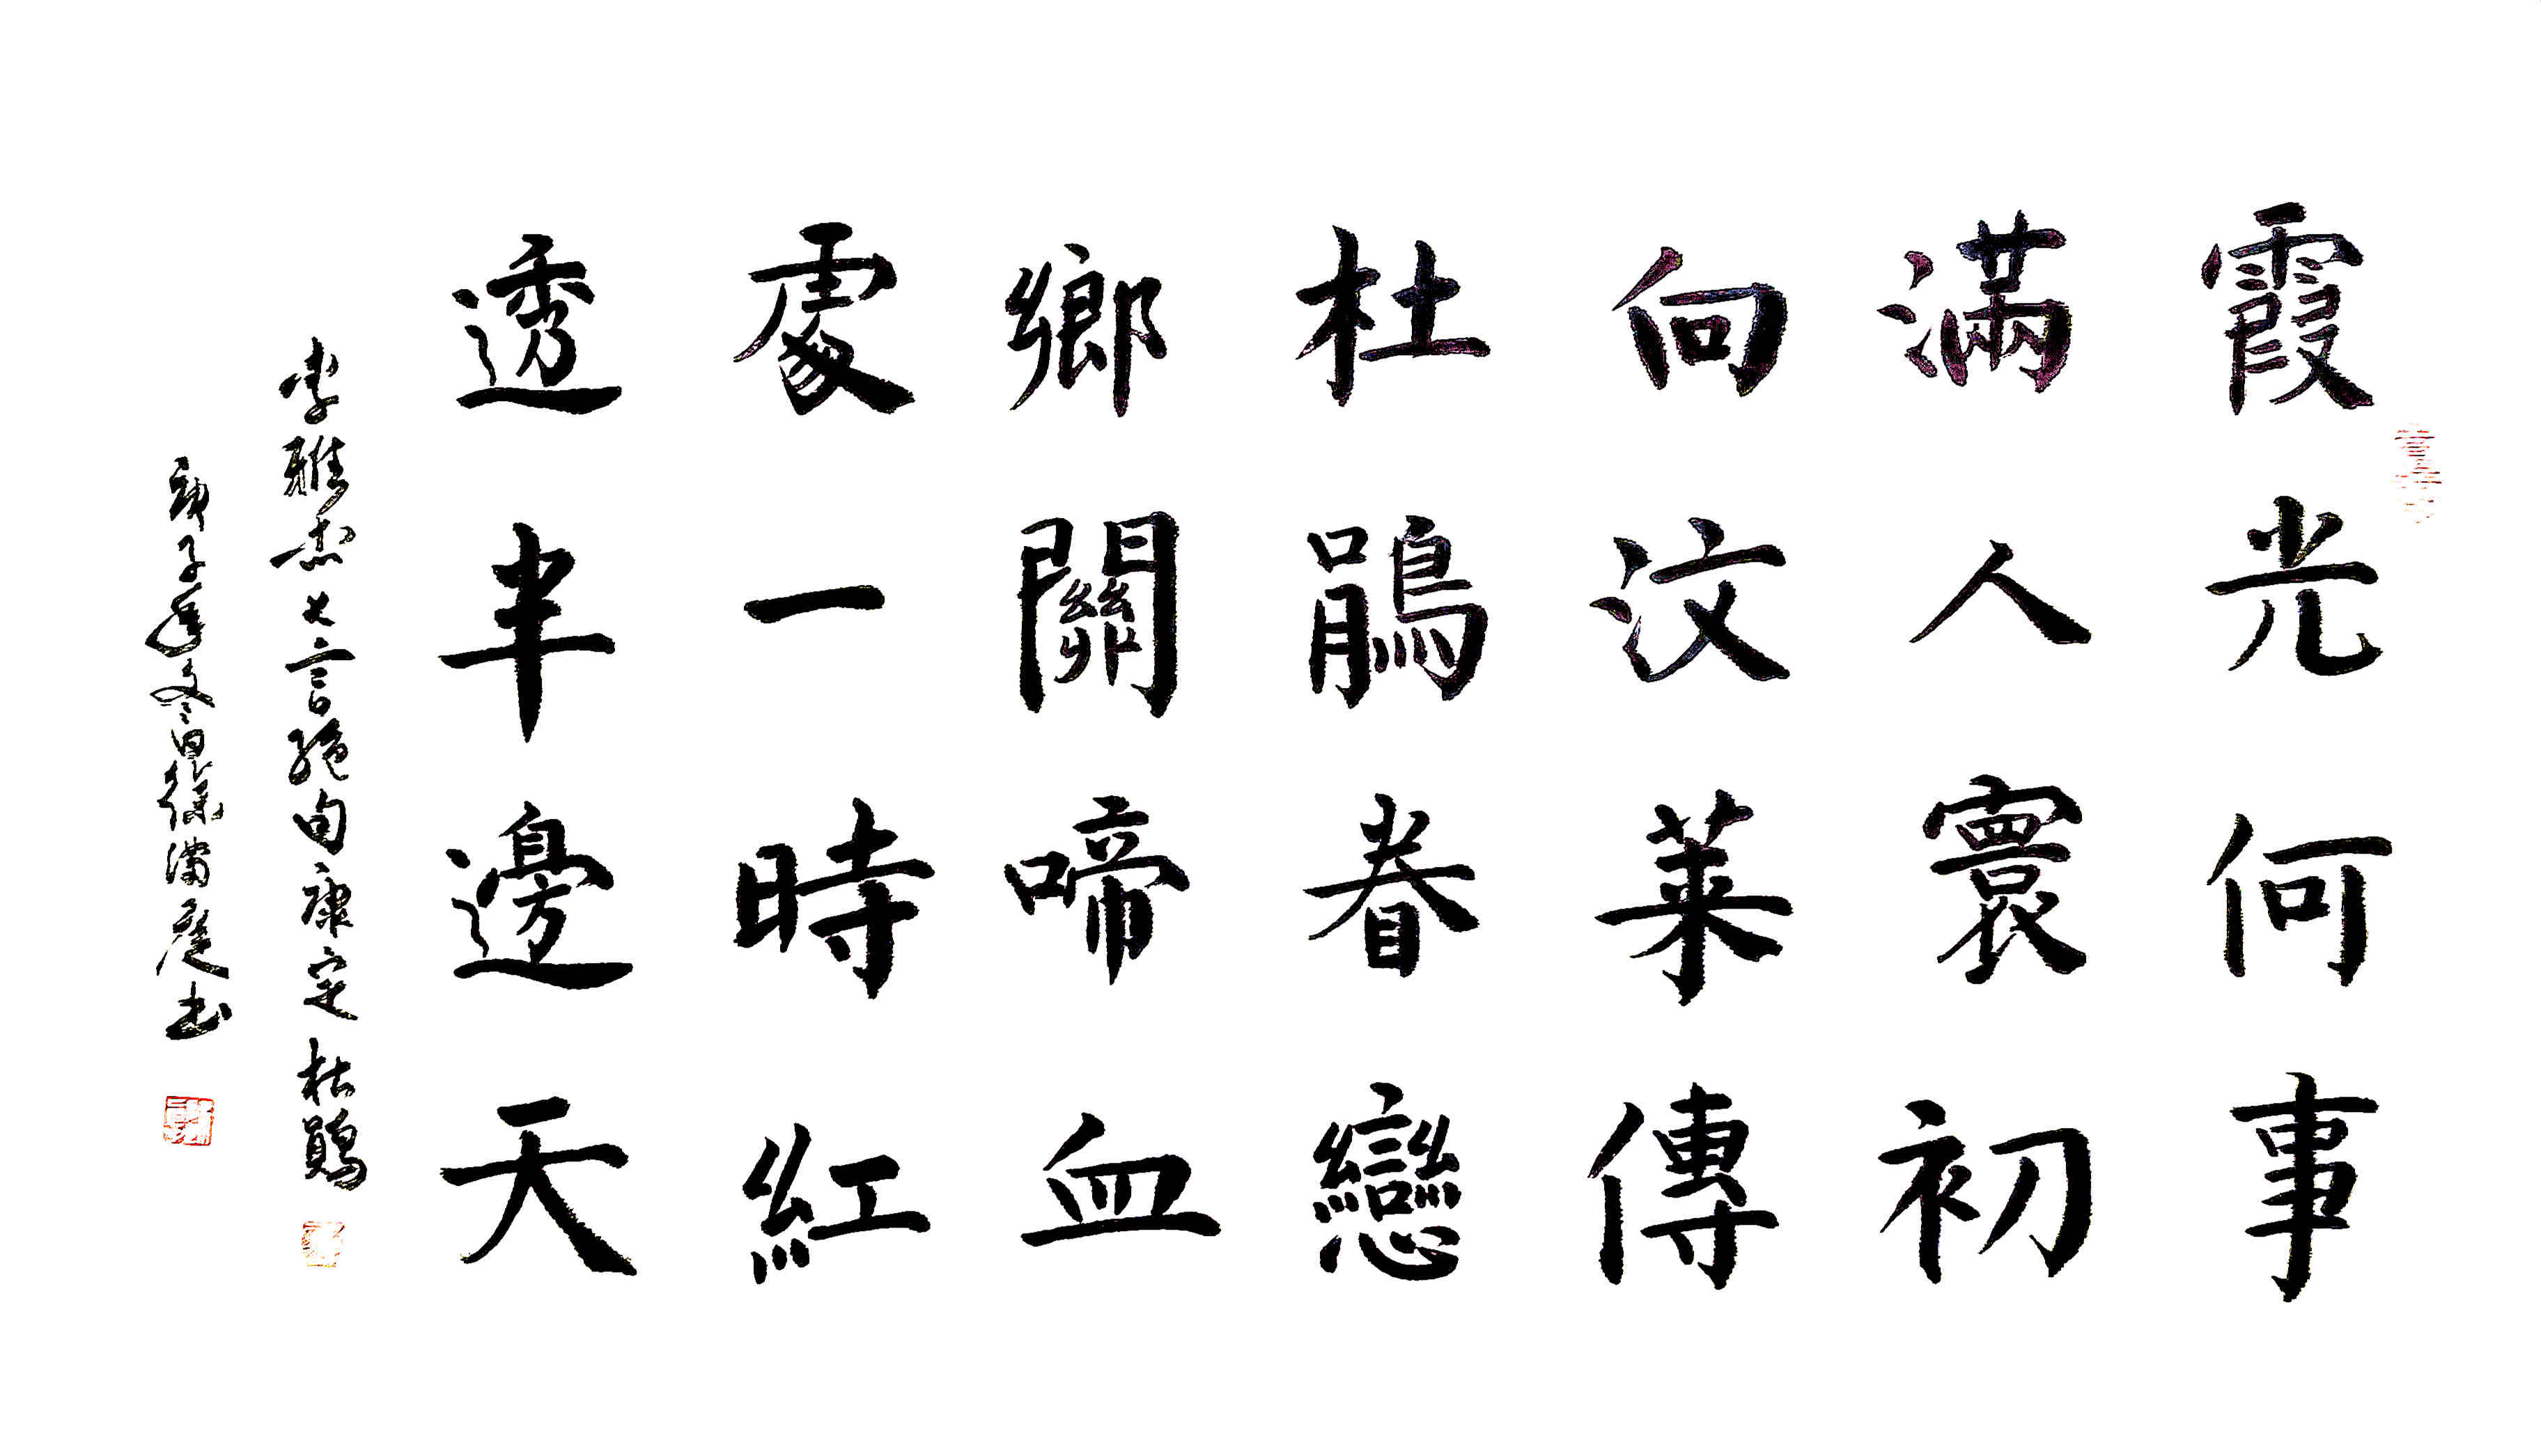 霞光何事
滿人寰初
向汶萊傳
杜鵑春戀
鄉關啼血
處一時紅
透半邊天
李雅杰七言絕句康定杜鵑
庚子年冬日徐滿庭书